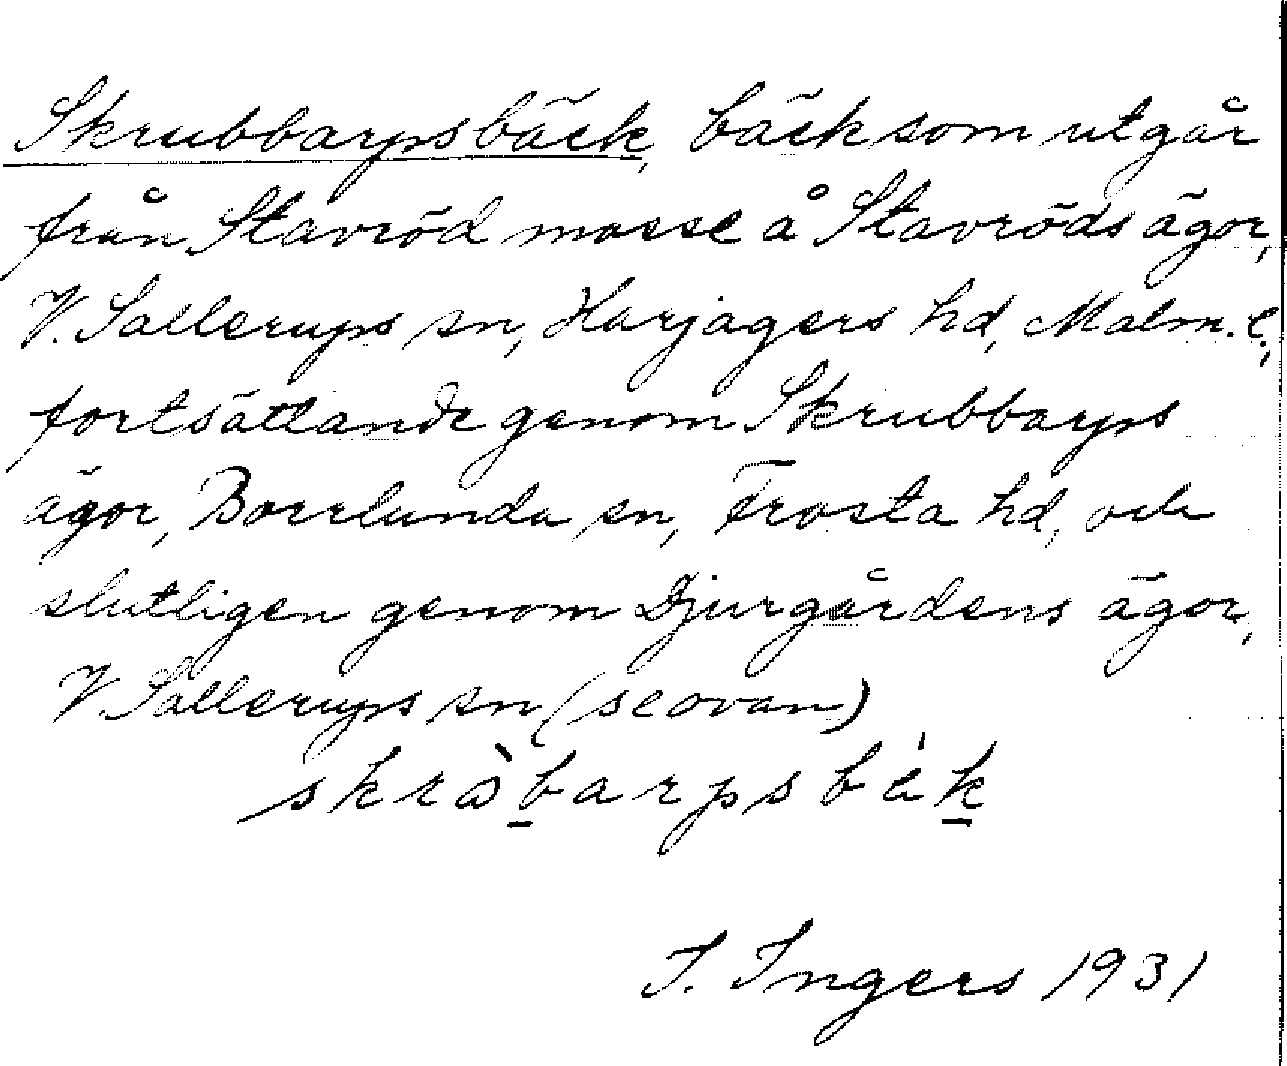 Skrubbarpsbäck, bäck som utgår
från Stavröd mosse å Stavröds ägor,
V. Sallerups sn, Harjagers hd, Malm. l.,
fortsättande genom Skrubbarps
ägor, Borrlunda sn, Frosta hd, och
slutligen genom Djurgårdens ägor,
V. Sallerups sn (se ovan)
I. Ingers 1931